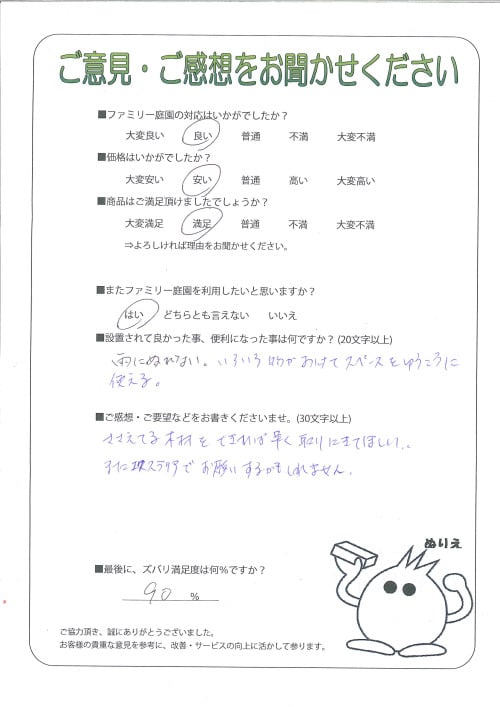 ご意見・ご感想をお聞かせください
■ファミリー庭園の対応はいかがでしたか？
大変良い 良い 普通 不満 大変不満
■価格はいかがでしたか？
大変安い 安い 普通 高い 大変高い
■商品はご満足頂けましたでしょうか？
大変満足 満足 普通 不満 大変不満
⇒よろしければ理由をお聞かせください。
■またファミリー庭園を利用したいと思いますか？
はい どちらとも言えない いいえ
■設置されて良かった事、便利になった事は何ですか？(20文字以上)
雨にぬれない。いろいろ物がおけてスペースをゆうこうに
使える。
■ご感想・ご要望などをお書きくださいませ。(30文字以上)
ささえてる木材をできれば早く取りにきてほしい。
またエクステリアでお願いするかもしれません。
ぬりえ
■最後に、ズバリ満足度は何%ですか？
90 %
ご協力頂き、誠にありがとうございました。
お客様の貴重な意見を参考に、改善・サービスの向上に活かして参ります。